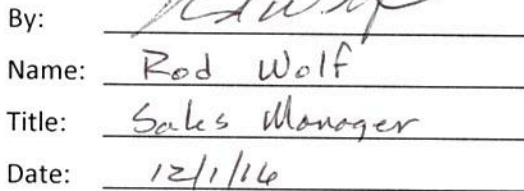 By:
Name: Rod Wolf
Title: Sales Manager
Date: 12/1/16